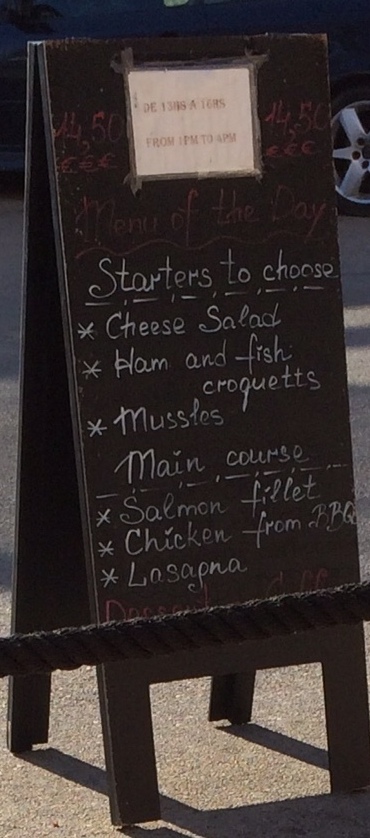 DE 13HS A 16HS
FROM 1PM TO 4PM
14,50 14,50
€€€ €€€
Menu of the Day
Starters to choose
* Cheese Salad
* Ham and fish
croquetts
* Mussles
Main course
* Salmon fillet
* Chicken from BBQ
* Lasagna